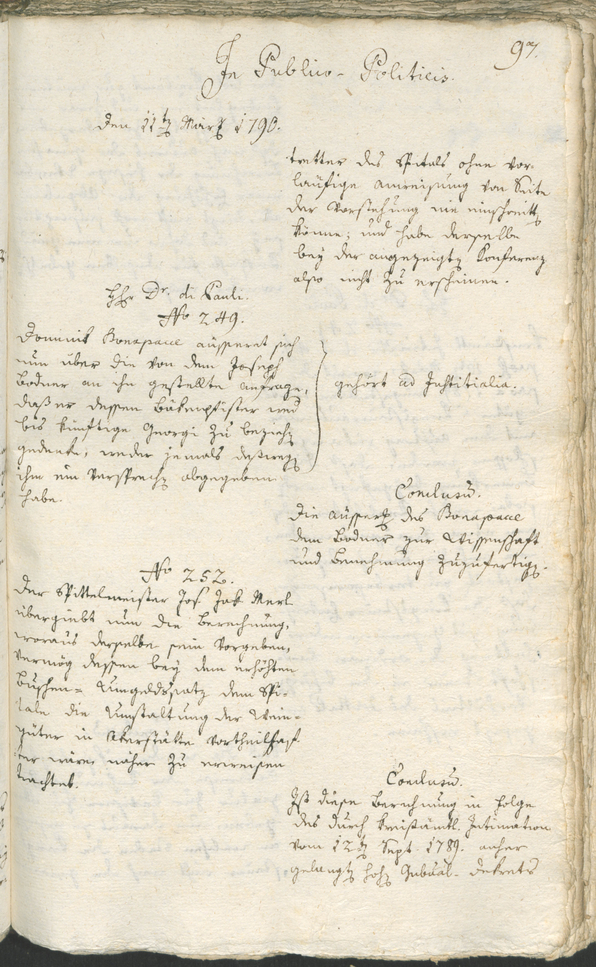 97.
In Publico-Politicis.
Den 11ten März 1790.
tretter des Spitals ohne vor-
läufige Anweisung von Seite
der Vorstehung nie einschreitten
könne; und habe derselbe
bey der angezeigten Konferenz
also nicht zu erscheinen.
Hhr Dr. di Pauli.
No 249.
Dominik Bonapace äusseret sich
nun über die von dem Joseph
Bodner an ihn gestellte Anfrage,
daß er dessen nie
bis künftige Georgi zu beziehen
gedenke, weder jemals desswegen
ihm ein Versprechen abgegeben
habe.
gehört ad Justitialia.
Conclusum.
Die äusserung des Bonapace
dem Bodner zur Wissenschaft
und Benehmung zuzufertigen.
No 252.
Der Spittelmeister Jos. Jak. Merl
übergiebt nun die Berechnung,
woraus derselbe sein Vorgeben,
vermög dessen bey dem erhöhten
Buschen- Umgeldssatz dem Spi-
tale die Umstaltung der Wein-
güter in Akerstätte vortheilhaf-
ter wäre, näher zu erweisen
trachtet.
Conclusum.
Ist diese Berechnung in Folge
des durch kreisämtl. Intimation
vom 12ten Sept. 1789. anher
gelangten hohen Gubal- Dekrets